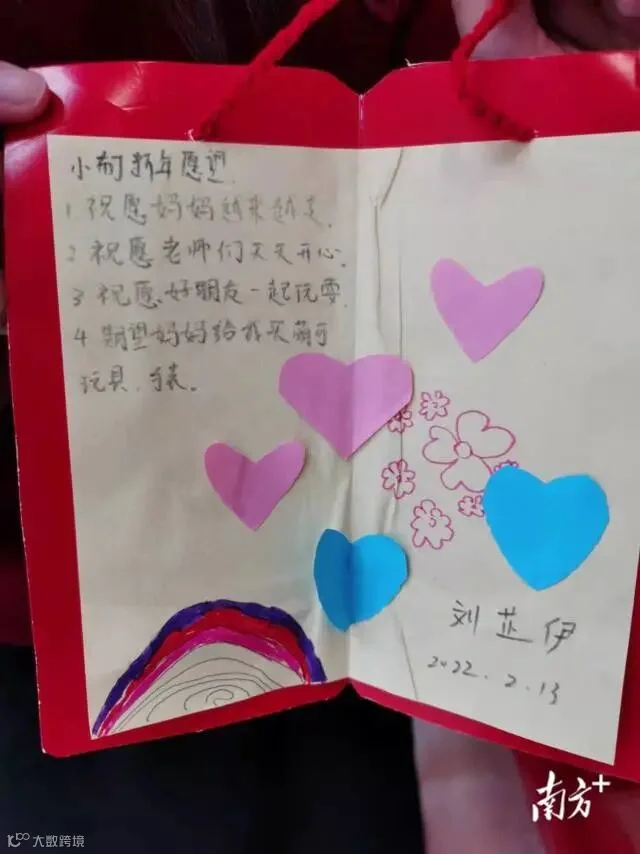 小荷新年愿望
1 祝愿妈妈越来越美.
2 祝愿老师们天天开心.
3 祝愿好朋友一起玩耍
4 期望妈妈给我买萌可
玩具.手表。
刘芷伊
2022.2.13
南方+
大数跨境